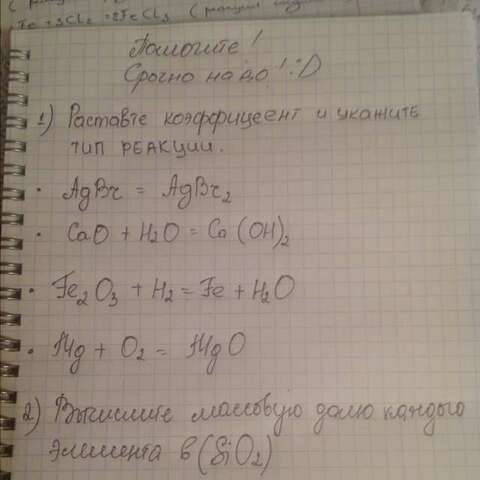 Fe + 3Cl₂ = 2FeCl₃ (реакция
Помогите!
Срочно надо! :D
1) Раставте коэффицеент и укажите
тип реакции.
• AgBr = AgBr₂
• CaO + H₂O = Ca(OH)₂
• Fe₂O₃ + H₂ = Fe + H₂O
• Mg + O₂ = MgO
2) Вычислите массовую долю каждого
элемента в (SiO₂)